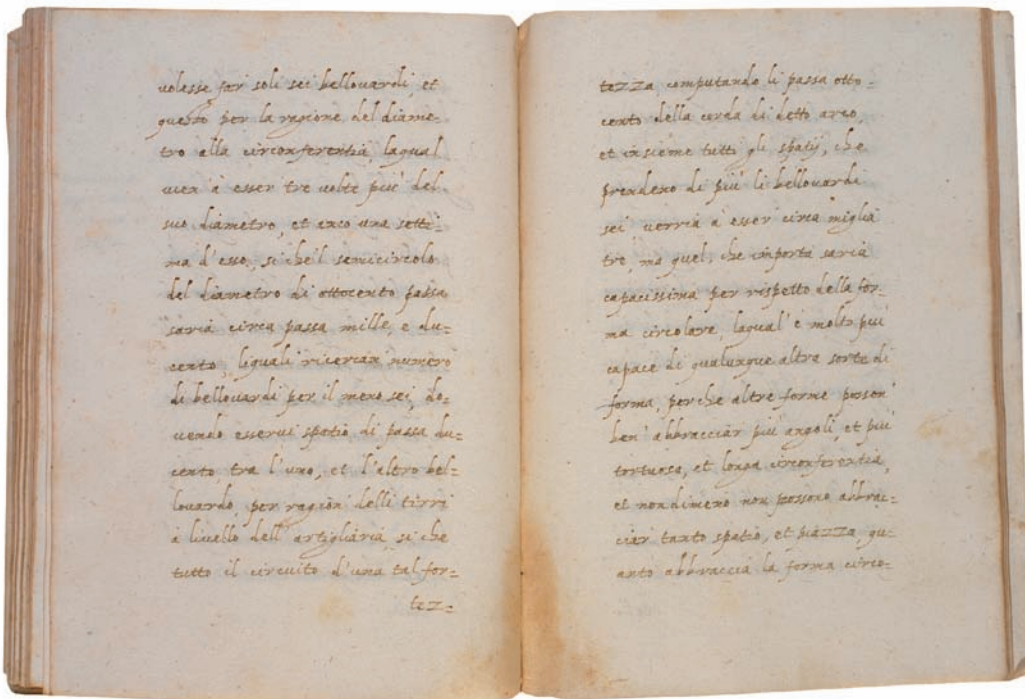 volesse far soli sei bellouardi, et
questo per la ragione del diame=
tro alla circonferentia, laqual
vien à esser tre volte piu' del
suo diametro, et anco una setti=
ma d'esso, si che'l semicircolo
del diametro di ottocento passa
saria circa passa mille, e du=
cento, liquali ricercan numero
di bellouardi per il meno sei, do=
uendo esserui spatio di passa du=
cento, tra l'uno, et l'altro bel=
louardo, per ragion delli tirri
à liuello dell'artigliaria, si che
tutto il circuito d'una tal for=
tez=
tezza computando li passa otto=
cento della corda di detto arco,
et insieme tutti gli spatij, che
prendeno di piu' li bellouardi
sei verria à esser circa miglia
tre, ma quel, che importa saria
capacissima per rispetto della for=
ma circolare, laqual' è molto piu'
capace di qualunque altra sorte di
forma, perche altre forme posson'
ben' abbracciar piu' angoli, et piu'
tortuosa, et longa circonferentia,
et nondimeno non possono abbrac=
ciar tanto spatio, et piazza, qu=
anto abbraccia la forma circo=